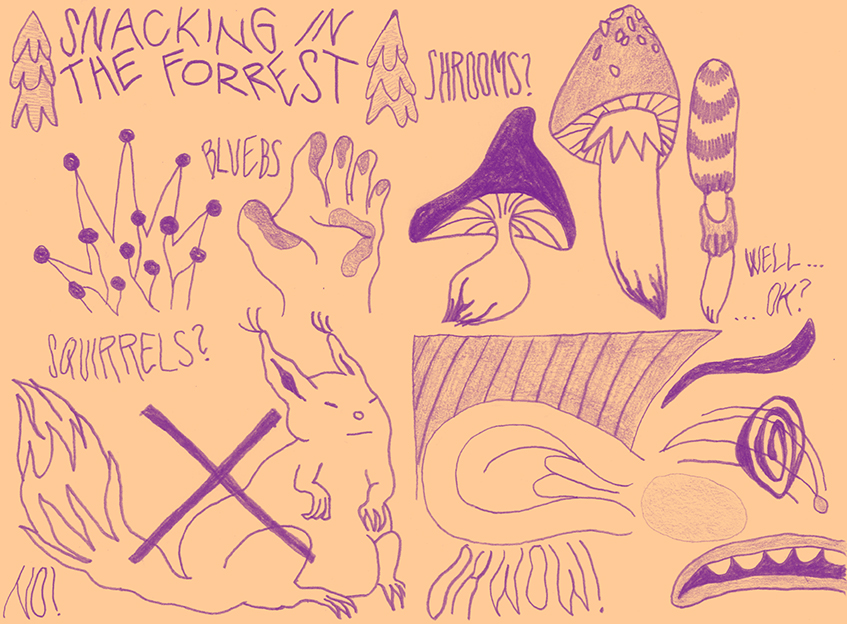 SNACKING IN
THE FORREST
SHROOMS?
BLUEBS
WELL...
...OK?
SQUIRRELS?
NO!
OHWOW!